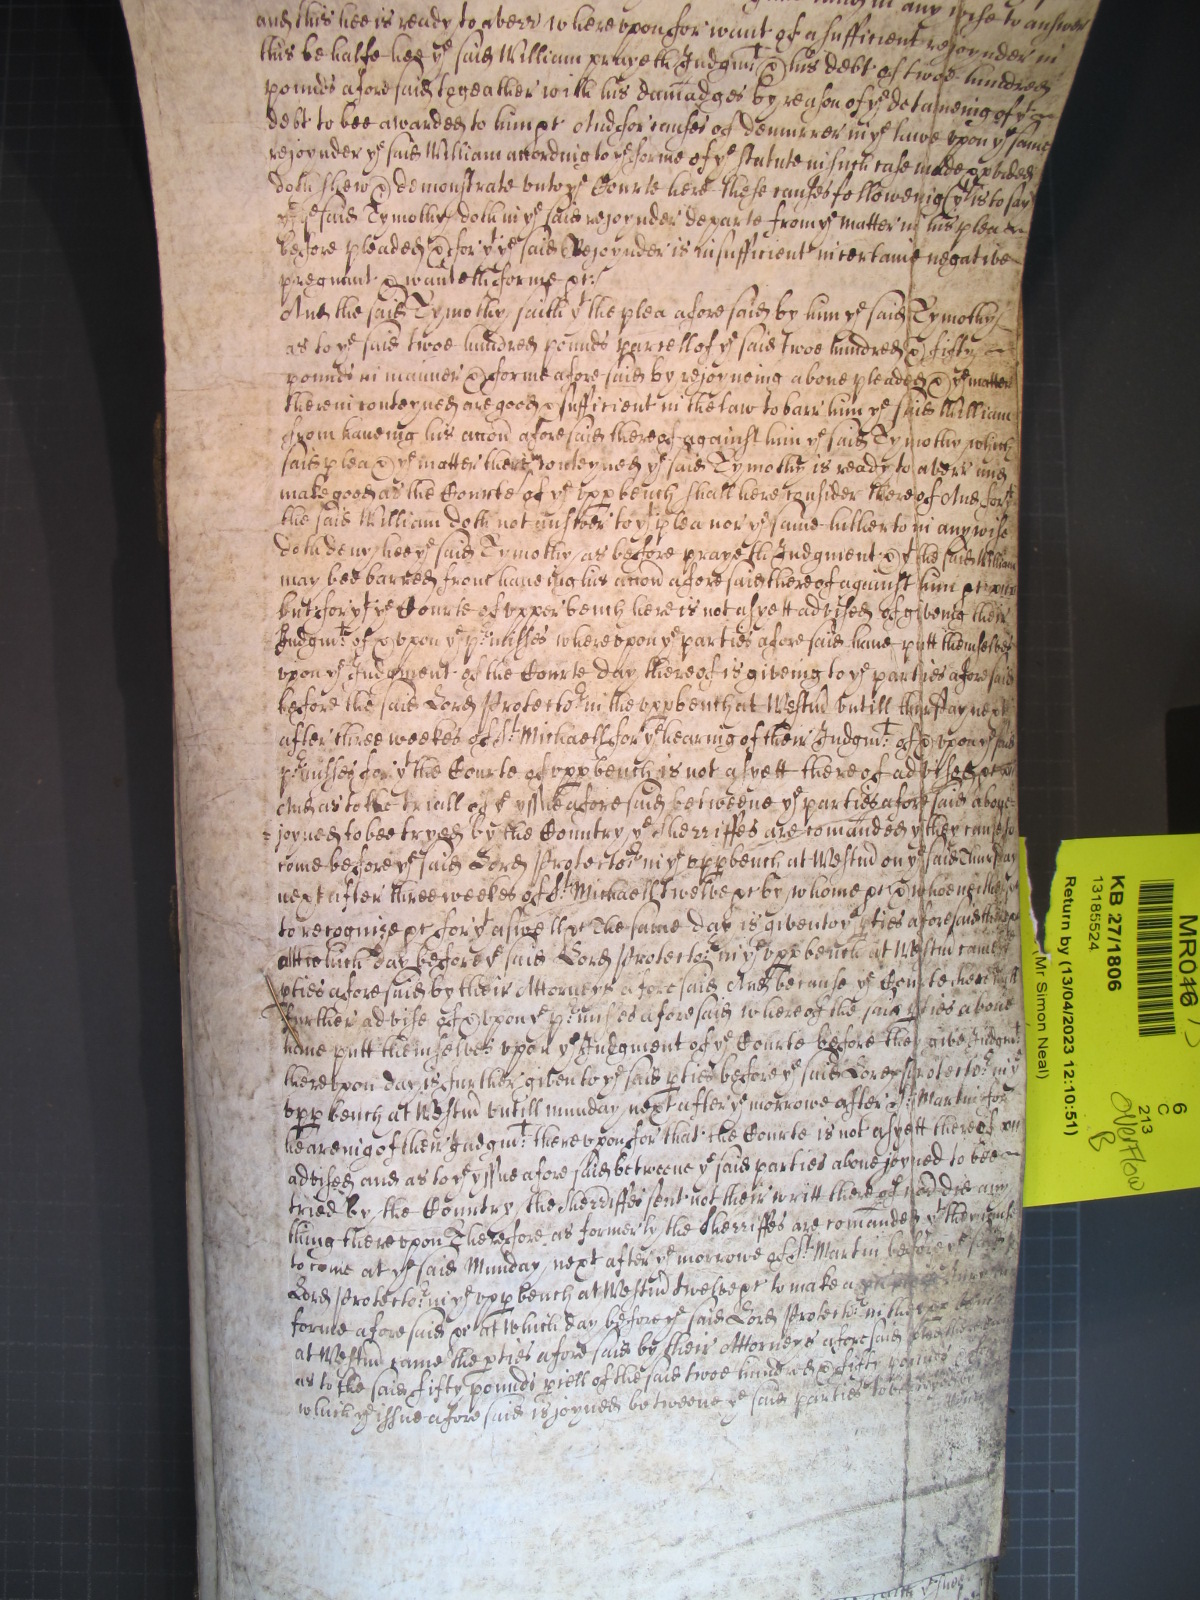 in any wise to answer
and this hee is ready to averr whereupon for want of a sufficient rejoynder in
this behalfe hee ye said William prayeth Judgmt & his debt of twoe hundred
pounds aforesaid togeather with his damadges by reason of ye deteineing of yt
debt to bee awarded to him &c And for causes of demurrer in ye lawe upon ye same
rejoynder ye said William according to ye forme of ye statute in such case made & pvided
doth shew & demonstrate unto ye Courte here these causes followeing (yt is to say
yt ye said Tymothy doth in ye said rejoynder departe from ye matter in his plea
before pleaded & for yt ye said Rejoynder is insufficient incertaine negative
pregnant & wanteth forme &c
And the said Tymothy saith yt the plea aforesaid by him ye said Tymothy
as to ye said twoe hundred pounds parcell of ye said twoe hundred & fifty
pounds in manner & forme aforesaid by rejoyneing above pleaded & ye matter
therein conteyned are good & sufficient in the law to barr him ye said William
from haveing his accon aforesaid thereof against him ye said Tymothy which
said plea & ye matter therein conteyned ye said Tymothy is ready to averr and
make good as the Courte of ye uppbench shall here consider thereof And for yt
the said William doth not answer to yt plea nor ye same hitherto in any wise
doth deny hee ye said Tymothy as before prayeth Judgment & yt the said William
may bee barred from haveing his accon aforesaid thereof against him &c
but for yt ye Courte of upper bench here is not as yett advised of giveing their
Judgmt of & upon ye pr:misses whereupon ye parties aforesaid have putt themselves
upon ye Judgment of the Courte day thereof is giveing to ye parties aforesaid
before the said Lord Protector in the uppbench at Westmr untill thursday next
after three weekes of St Michaell for ye heareing of their Judgmt of & upon ye said
pr:misses for yt the Courte of uppbench is not as yett thereof advised &c
And as to the triall of ye yssue aforesaid betweene ye parties aforesaid above
joyned to bee tryed by the Country ye Sherriffes are comanded yt they cause to
come before ye said Lord Protector in ye uppbench at Westmr on ye said Thursday
next after three weekes of St Michaell twelve &c by whome &c & whoe neither
to recognize &c for yt aswell &c The same day is given to ye pties aforesaid there &c
Att which day before ye said Lord Protector in ye uppbench at Westmr came ye
pties aforesaid by their Attorneys aforesaid And because ye Courte here will
further advise of & upon ye pr:misses aforesaid whereof the said pties above
have putt themselves upon ye Judgment of ye Courte before they give Judgmt
thereupon day is further given to ye said pties before ye said Lord Protector in ye
uppbench at Westmr untill munday next after ye morrowe after St Martin for
heareing of their Judgmt thereupon for that the Courte is not as yett thereof
advised and as to ye yssue aforesaid betweene ye said parties above joyned to bee
tried by the Country the Sherriffes sent not their writt thereof nor did any
thing thereupon Therefore as formerly the Sherriffes are comanded yt they cause
to come at ye said Munday next after ye morrowe of St Martin before ye said
Lord Protector in ye uppbench at Westmr twelve &c to make a
forme aforesaid &c at which day before ye said Lord Protector in the upp bench
at Westmr came the pties aforesaid by their Attorneys aforesaid
as to the said fifty pounds pcell of the said twoe hundred & fifty pounds
which ye issue aforesaid is joyned betweene ye said parties to bee
MR046
KB 27/1806
13185524
Return by (13/04/2023 12:10:51)
(Mr Simon Neal)
6
C
213
Overflow
B